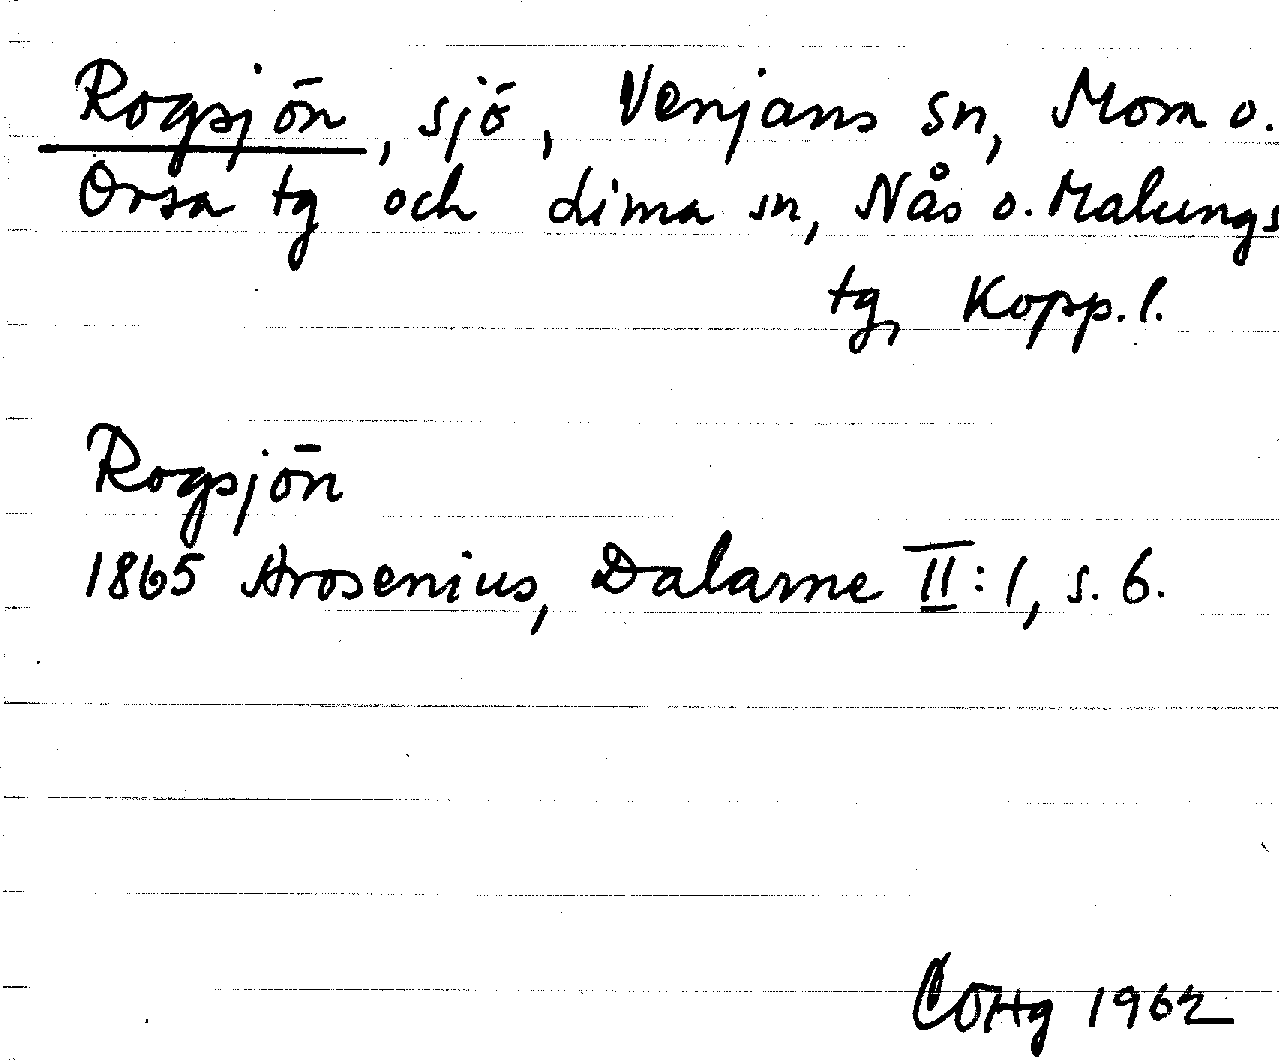 Rogsjön, sjö, Venjans sn, Mora o.
Orsa tg och Lima sn, Nås o. Malungs
tg, Kopp. l.
Rogsjön
1865 Arosenius, Dalarne II:1, s. 6.
COHg 1962